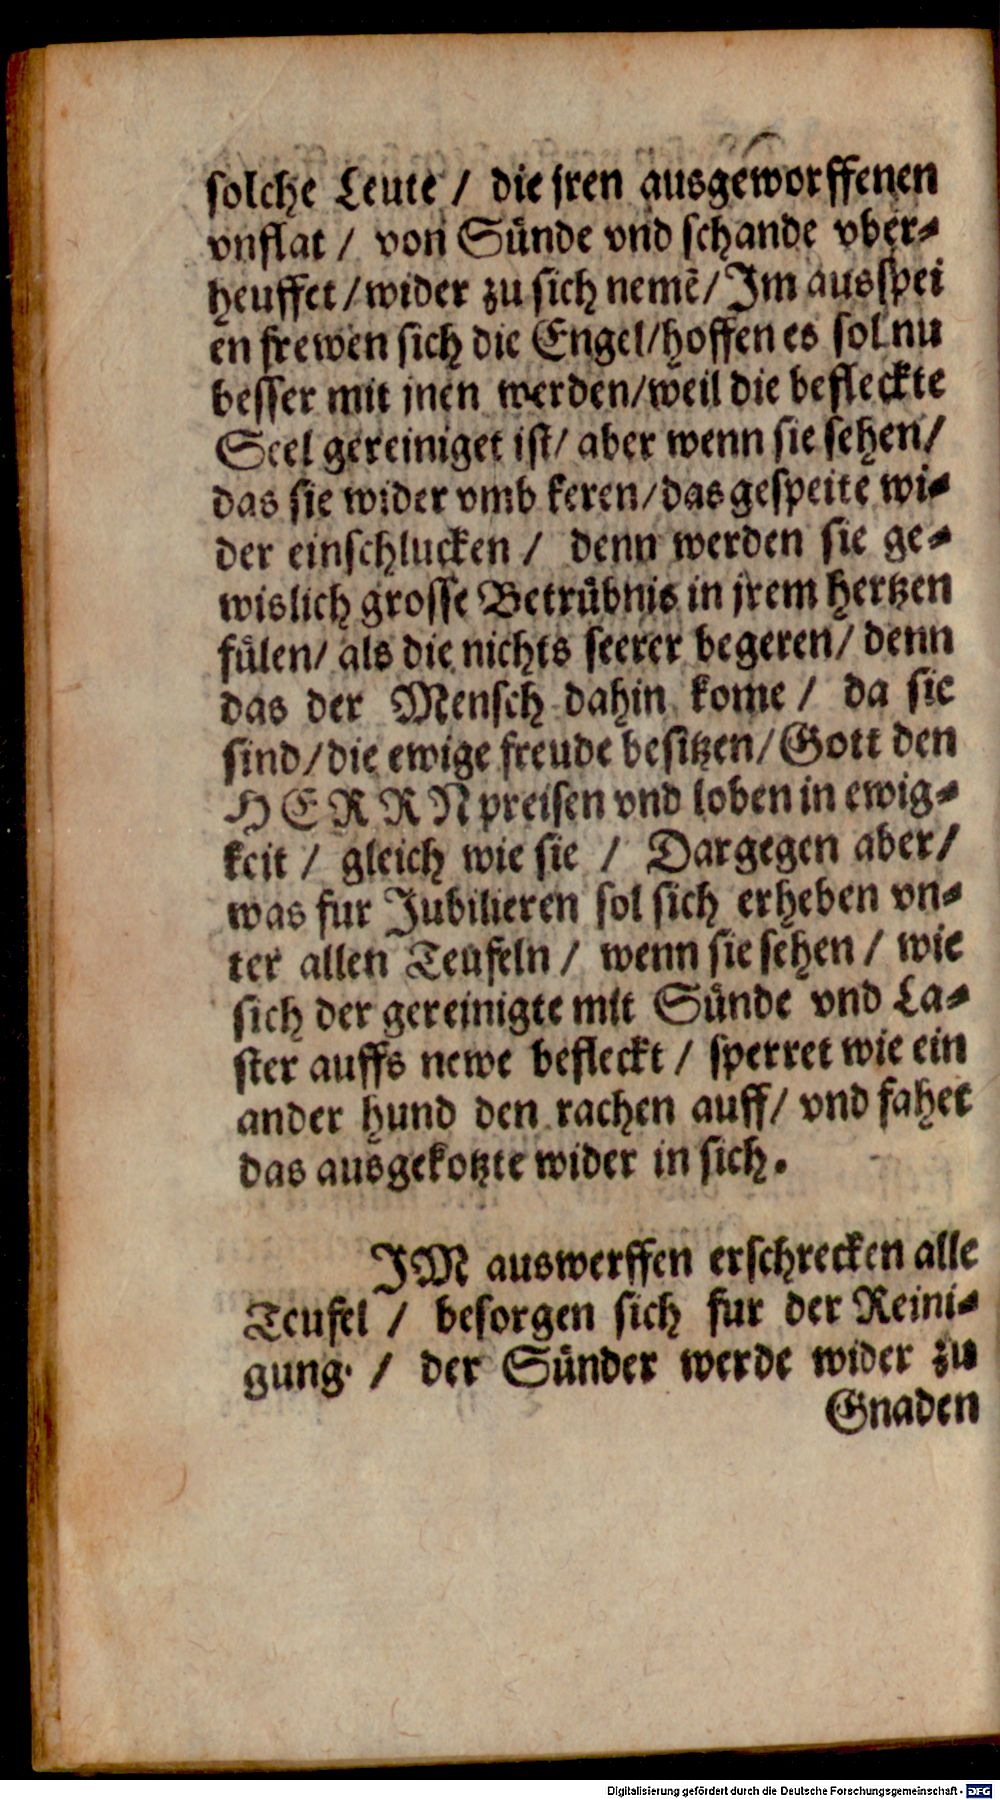 solche Leute / die jren ausgeworffenen
vnflat / von Sünde vnd schande vber-
heuffet / wider zu sich nemẽ / Im ausspei
en frewen sich die Engel / hoffen es sol nu
besser mit jnen werden / weil die befleckte
Seel gereiniget ist / aber wenn sie sehen /
das sie wider vmb keren / das gespeite wi-
der einschlucken / denn werden sie ge-
wislich grosse Betrübnis in jrem hertzen
fülen / als die nichts seerer begeren / denn
das der Mensch dahin kome / da sie
sind / die ewige freude besitzen / Gott den
HERRN preisen vnd loben in ewig-
keit / gleich wie sie / Dargegen aber /
was fur Jubilieren sol sich erheben vn-
ter allen Teufeln / wenn sie sehen / wie
sich der gereinigte mit Sünde vnd La-
ster auffs newe befleckt / sperret wie ein
ander hund den rachen auff / vnd fahet
das ausgekotzte wider in sich.
IM auswerffen erschrecken alle
Teufel / besorgen sich fur der Reini-
gung / der Sünder werde wider zu
Gnaden
Digitalisierung gefördert durch die Deutsche Forschungsgemeinschaft - DFG